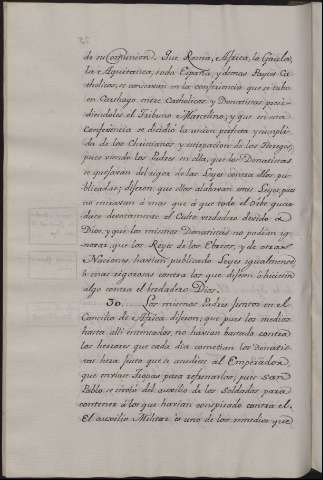 de su Comunion. Que Roma, Africa, la Gaula,
la Aquitanica, toda España, y demas Reynos Ca-
tholicos, se concertan en la conferencia que se tubo
en Carthago entre Catholicos, y Donatistas, presi-
diendoles el Tribuno Marcelino; y que en una
Conferencia se decidio la union perfecta y cumpli-
da de los Christianos y extirpacion de los Hereges,
pues viendo los Padres en ella, que los Donatistas
se quejavan del rigor de las Leyes contra ellos pu-
blicadas; dijeron, que ellos alabavan estas Leyes, pues
no miravan à mas que à que todo el Orbe guar-
dase devotamente el Culto verdadero devido à
Dios, y que los mismos Donatistas no podian ig-
norar, que los Reyes de los Ebreos, y de otras
Naciones havian publicado Leyes igualmente
ò mas rigorosas contra los que dijesen ò hiciesen
algo contra el verdadero Dios.
30. Los mismos Padres juntos en el
Concilio de Africa dijeron, que pues los medios
hasta alli intentados, no havian bastado contra
los horrores que cada dia cometian los Donatis-
tas hera justo que se acudiese al Emperador,
que embie Tropas para refrenarlos; pues San
Pablo se valió del auxilio de los Soldados para
contener à los que havian conspirado contra el.
El auxilio Militar es uno de los remedios que